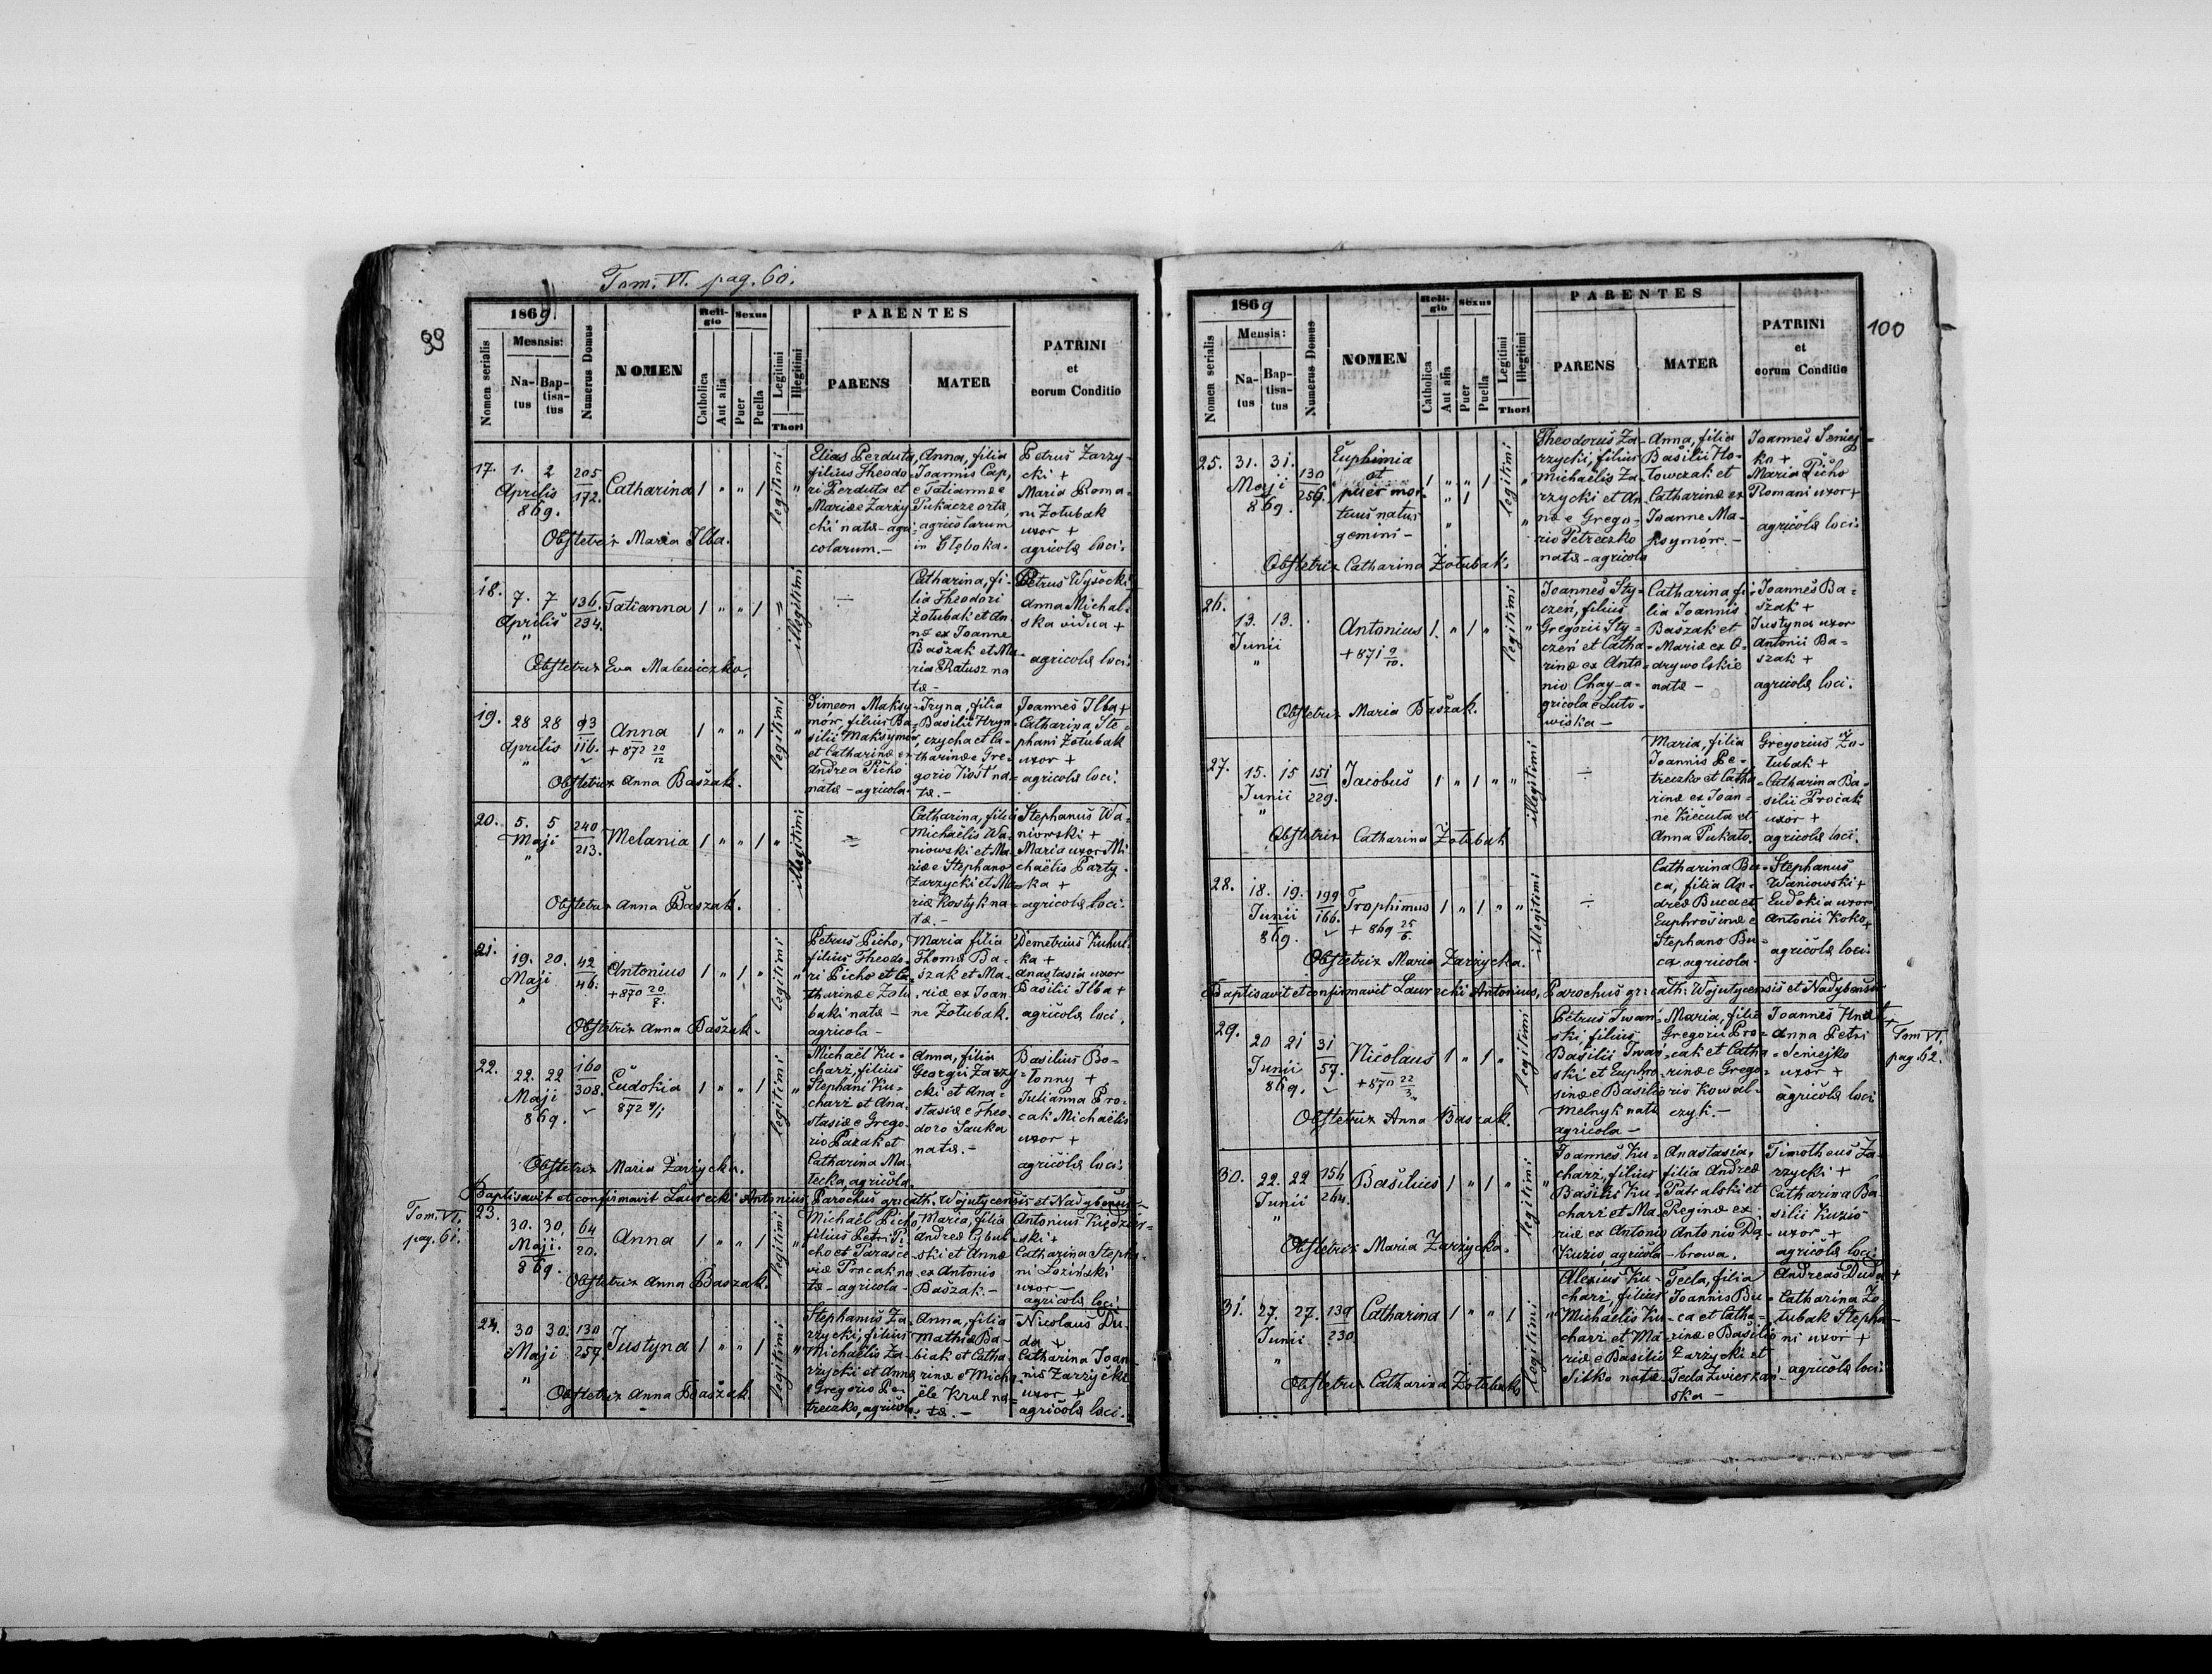 Tom. VI. pag. 60.
99
1869
Mesnsis:
Nomen serialis
Na-
tus
Bap-
tisa-
tus
Numerus Domus
NOMEN
Reli-
gio
Catholica
Aut alia
Sexus
Puer
Puella
Legitimi
Illegitimi
Thori
PARENTES
PARENS
MATER
PATRINI
et
eorum Conditio
17.
1. 2
Aprilis
869.
205
172.
Catharina
legitimi
Elias Perduta,
filius Theodo-
ri Perduta et
Mariæ e Zarzy
cki natæ - agri
colarum. -
Anna, filia
Joannis Cap,
e Tatianna e
Pukacze ortæ,
agricolarum
in Głęboka.
Petrus Zarzy-
cki +
Maria Roma-
ni Żołubak
uxor +
agricolæ loci.
Obstetrix Maria Ilba.
18.
7. 7
Aprilis
"
136.
234.
Tatianna
illegitimi
÷
Catharina, fi-
lia Theodori
Żołubak et An-
næ ex Joanne
Baszak et Ma-
ria Ratusz na
tæ -
Petrus Wysocki
Anna Michal-
ska vidua +
agricolæ loci.
Obstetrix Eva Maleniczka.
19.
28 28
Aprilis
"
93
116.
Anna
+ 872 20/12
legitimi
Simeon Maksy-
mów, filius Ba-
silii Maksymów,
et Catharinæ ex
Andrea Picho
natæ - agricola.
Iryna, filia
Basilii Hryn-
czycha et Ca-
tharinæ e Gre-
gorio Kost na-
tæ. -
Joannes Ilba +
Catharina Ste-
phani Żołubak
uxor +
agricolæ loci.
Obstetrix Anna Baszak.
20.
5. 5
Maji
"
240
213.
Melania
illegitimi
÷
Catharina, filia
Michaëlis Wa-
niowski et Ma-
riæ e Stephano
Zarzycki et Ma-
riæ Kostyk na-
tæ. -
Stephanus Wa-
niowski +
Maria uxor Mi
chaëlis Party-
ka +
agricolæ loci.
Obstetrix Anna Baszak.
21.
19. 20.
Maji
"
42
46.
Antonius
+ 870 20/8.
legitimi
Petrus Picho,
filius Theodo-
ri Picho et Ca-
tharinæ e Żołu
baki natæ -
agricola -
Maria filia
Thomæ Ba-
szak et Ma-
riæ ex Joan-
ne Żołubak.
Demetrius Kuhul-
ka +
Anastasia uxor
Basilii Ilba +
agricolæ loci.
Obstetrix Anna Baszak.
22.
22. 22
Maji
869.
160
308.
Eudokia
872 9/1
legitimi
Michaël Ku-
charz, filius
Stephani Ku-
charz et Ana-
stasiæ e Grego-
rio Pazak et
Catharina Ma-
tecka, agricola.
Anna, filia
Georgii Zarzy-
cki et Ana-
stasiæ e Theo-
doro Sauka
natæ. -
Basilius Bo-
tonny +
Julianna Pro-
cak Michaëlis
uxor +
agricolæ loci.
Obstetrix Maria Zarzycka.
Baptisavit et confirmavit Laurecki Antonius, Parochus gr: cath: Wojutycensis et Nadybensis
Tom. VI.
pag. 61.
23.
30. 30.
Maji.
869.
64
20.
Anna
legitimi
Michaël Picho,
filius Petri Pi-
cho et Parasce-
viæ Procak na-
tæ - agricola -
Maria, filia
Andreæ Cybul-
ski et Annæ
ex Antonio
Baszak. -
Antonius Kiędzier-
ski +
Catharina Stepha-
ni Łoziński
uxor -
agricolæ loci.
Obstetrix Anna Baszak.
24.
30 30.
Maji
"
130
257.
Justyna
legitimi
Stephanus Za-
rzycki, filius
Michaëlis Za-
rzycki et Annæ
e Gregorio Pe-
treczko, agricola.
Anna, filia
Mathiæ Ba-
biak et Catha-
rinæ e Micha-
ële Krul na-
tæ. -
Nicolaus Du-
da +
Catharina Joan-
nis Zarzycki
uxor +
agricolæ loci.
Obstetrix Anna Baszak.
100
1869
Mensis:
Nomen serialis
Na-
tus
Bap-
tisa-
tus
Numerus Domus
NOMEN
Reli-
gio
Catholica
Aut alia
Sexus
Puer
Puella
Legitimi
Illegitimi
Thori
PARENTES
PARENS
MATER
PATRINI
et
eorum Conditio
25.
31. 31.
Maji
869.
130
256.
Euphimia
et
puer mor-
tuus natus
gemini -
legitimi
Theodorus Za-
rzycki, filius
Michaëlis Za-
rzycki et An-
næ e Grego-
rio Petreczko
natæ - agricola
Anna, filia
Basilii Ho-
łowczak et
Catharinæ ex
Joanne Ma-
ksymów. -
Joannes Seniej-
ko +
Maria Picho
Romani uxor +
agricolæ loci.
Obstetrix Catharina Żołubak.
26.
13. 13.
Junii
"
Antonius
+ 871 9/10.
legitimi
Joannes Sty-
czeń, filius
Gregorii Sty-
czeń et Catha-
rinæ ex Anto-
nio Chay - a-
gricola e Luto-
wiska -
Catharina fi-
lia Joannis
Baszak et
Mariæ ex O-
drywolskie
natæ -
Joannes Ba-
szak +
Justyna uxor
Antonii Ba-
szak +
agricolæ loci.
Obstetrix Maria Baszak.
27.
15. 15
Junii
"
151
229.
Jacobus
illegitimi
÷
Maria, filia
Joannis Pe-
treczko et Catha-
rinæ ex Joan-
ne Kiecuła et
Anna Pukało.
Gregorius Żo-
łubak +
Catharina Ba-
silii Procak
uxor +
agricolæ loci.
Obstetrix Catharina Żołubak
28.
18. 19.
Junii
869.
199
166.
Trophimus
+ 869 25/6.
illegitimi
÷
Catharina Bu-
ca, filia An-
dreæ Buca et
Euphrosinæ e
Stephano Bu-
ca agricola.
Stephanus
Waniowski +
Eudokia uxor
Antonii Koko,
+
agricolæ loci.
Obstetrix Maria Zarzycka.
Baptisavit et confirmavit Laurecki Antonius, Parochus gr: cath: Wojutycensis et Nadybensis
29.
20 21
Junii
869.
31
57.
Nicolaus
+ 870 22/3
legitimi
Petrus Iwań-
ski, filius
Basilii Iwań-
ski et Euphro-
sinæ e Basilio
Melnyk natæ
agricola -
Maria, filia
Gregorii Pro-
cak et Catha-
rinæ e Grego-
rio Kowal-
czyk. -
Joannes Hnat +
Anna Petri
Seniejko
uxor +
agricolæ loci
Tom VI.
pag. 62.
Obstetrix Anna Baszak.
30.
22. 22
Junii
"
156
264.
Basilius
legitimi
Joannes Ku-
charz, filius
Basilii Ku-
charz et Ma-
riæ ex Antonio
Kuzio, agricola
Anastasia,
filia Andreæ
Patralski et
Reginæ ex
Antonio Dą-
browa.
Timotheus Za-
rzycki +
Catharina Ba
silii Kuzio
uxor +
agricolæ loci.
Obstetrix Maria Zarzycka.
31.
27. 27.
Junii
"
139
230
Catharina
legitimi
Alexius Ku-
charz, filius
Michaëlis Ku-
charz et Ma-
riæ e Basilio
Sitko natæ -
Tecla, filia
Joannis Bu-
ca et Catha-
rinæ e Basilio
Zarzycki et
Tecla Zwierzan-
ska -
Andreas Duda +
Catharina Żo-
łubak Stepha-
ni uxor +
agricolæ loci.
Obstetrix Catharina Żołubak